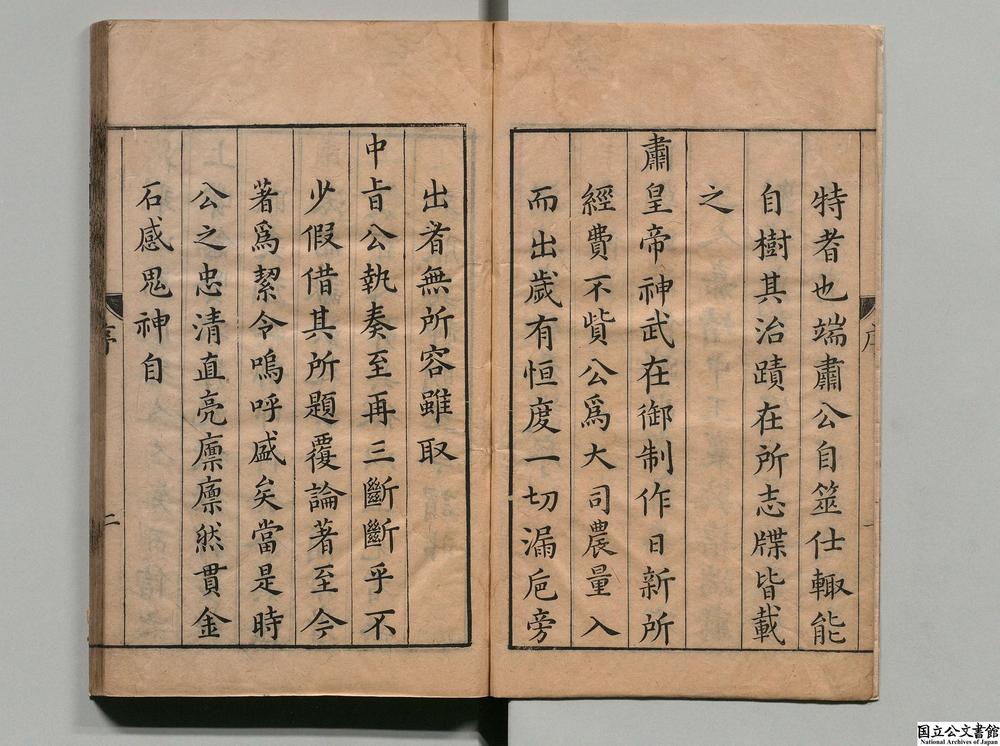 特者也端肅公自筮仕輙能
自樹其治蹟在所志牒皆載
之
肅皇帝神武在御制作日新所
經費不貲公爲大司農量入
而出歲有恒度一切漏巵旁
出者無所容雖取
中旨公執奏至再三斷斷乎不
少假借其所題覆論著至今
著爲絜令嗚呼盛矣當是時
公之忠清直亮廪廪然貫金
石感鬼神自
序
二
国立公文書館
National Archives of Japan